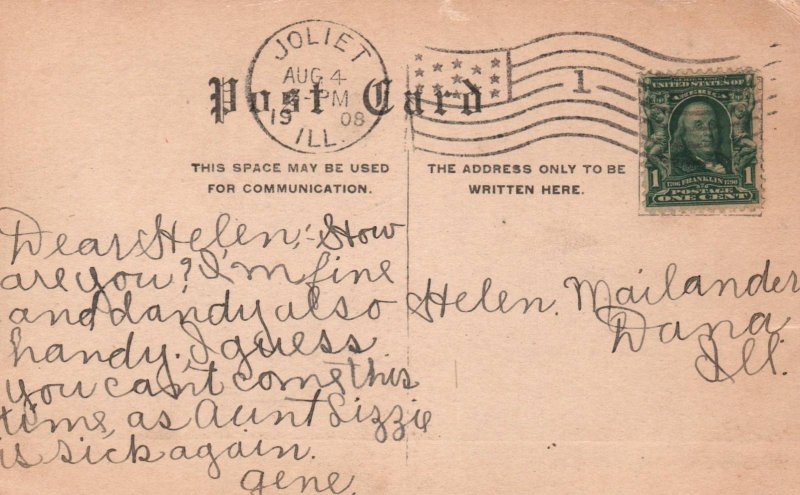 JOLIET
AUG 4
-PM
19 08
ILL.
1
Post Card
UNITED STATES OF
AMERICA
1706 FRANKLIN 1790
1 1
POSTAGE
ONE CENT
THIS SPACE MAY BE USED
FOR COMMUNICATION.
THE ADDRESS ONLY TO BE
WRITTEN HERE.
Dear Helen:- How
are you? I'm fine
and dandy also
handy. I guess
you can't come this
time, as Aunt Lizzie
is sick again.
Gene.
Helen. Mailander
Dana.
Ill.